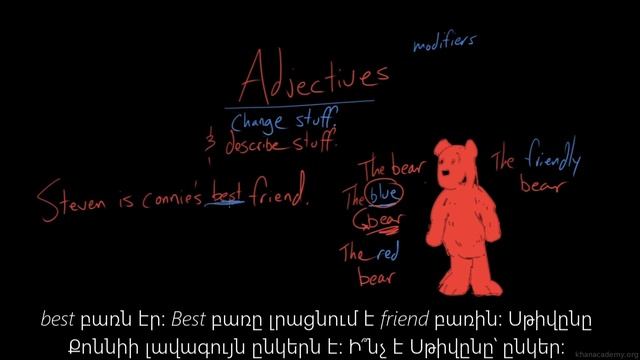 modifiers
Adjectives
Change stuff.
& describe stuff.
Steven is connie's best friend.
The bear
The blue
bear
The red
bear
The friendly
bear
best բառն էր: Best բառը լրացնում է friend բառին: Սթիվընը
Քոննիի լավագույն ընկերն է: Ի՞նչ է Սթիվընը՝ ընկեր:
khanacademy.org